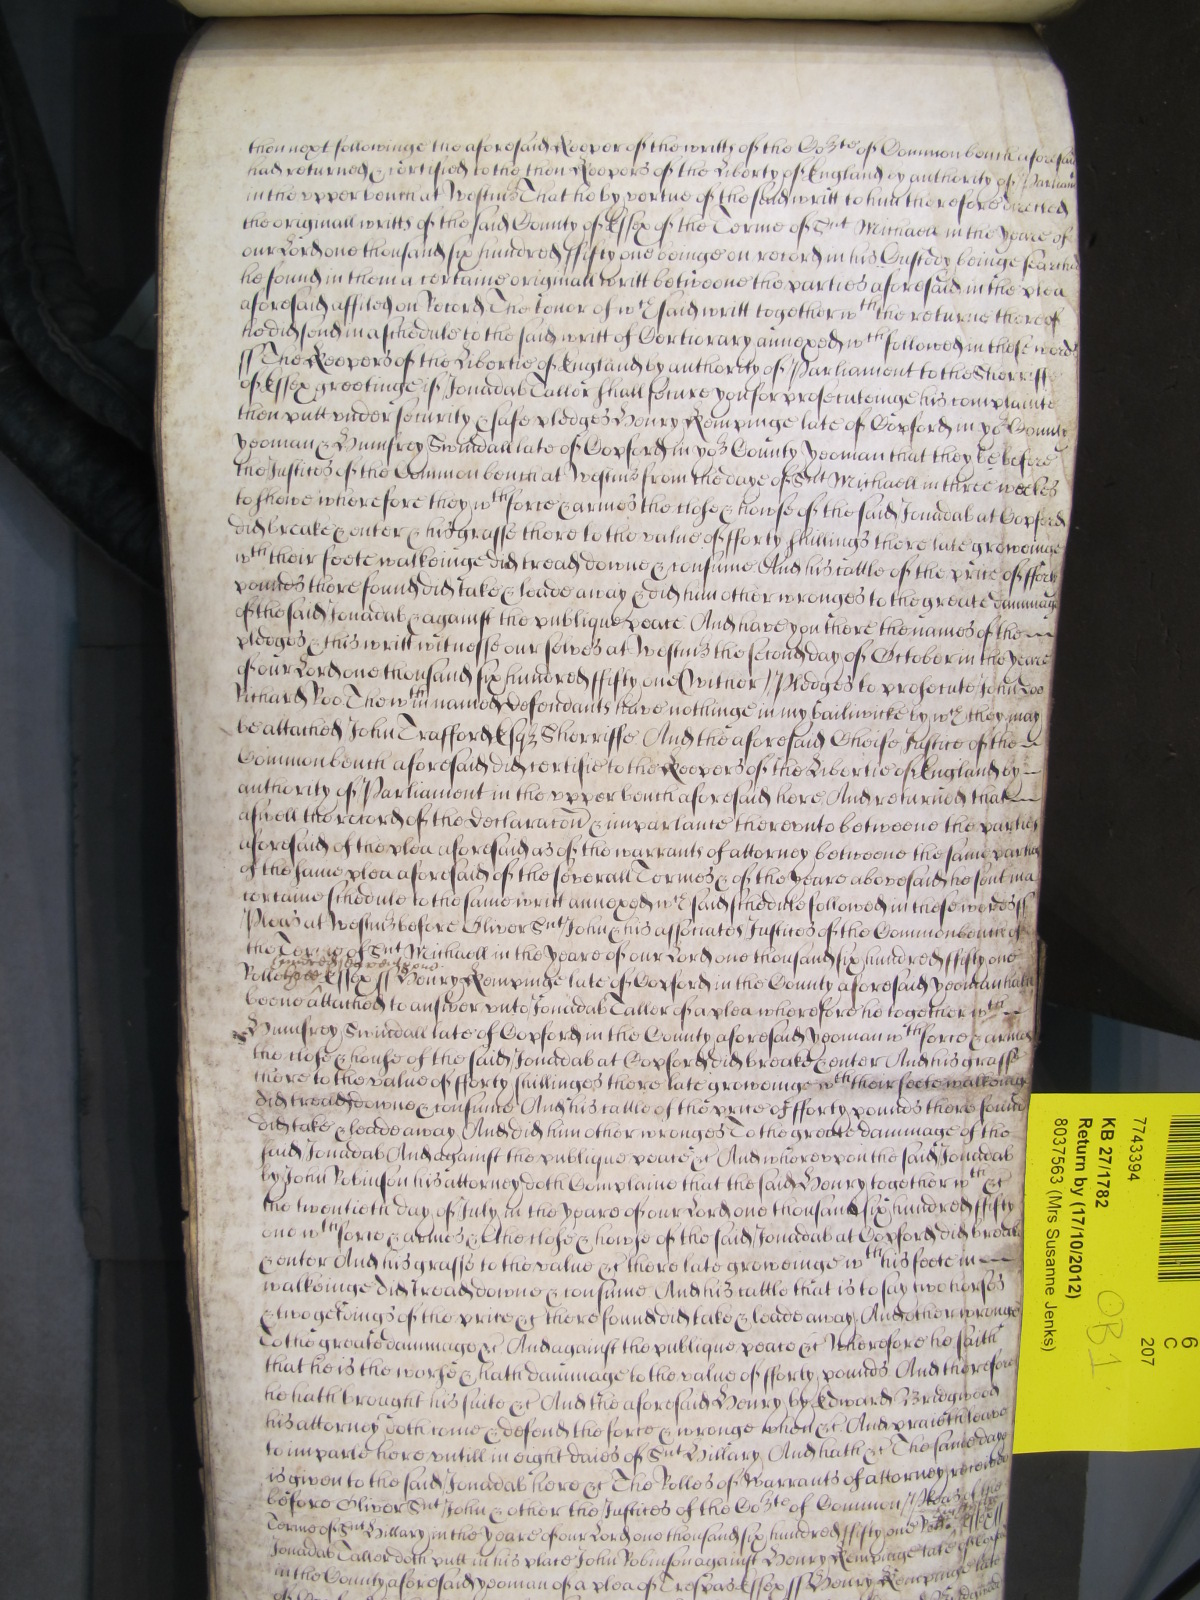 then next followinge the aforesaid Keeper of the writts of the Co:rte of Common bench aforesaid
had returned & certified to the then Keepers of the Liberty of England by authority of Parliam
in the upper bench at Westmr That he by vertue of the said writt to him therefore directed
the originall writts of the said County of Essex of the Terme of Snt Michaell in the yeare of
our Lord one thousand six hundred ffifty one beinge on record in his Custody beinge searched
he found in them a certaine originall writt betweene the parties aforesaid in the plea
aforesaid affiled on Record The tenor of wch said writt together wth the returne thereof
he did send in a schedule to the said writt of Certiorary annexed wch followed in these words
ss The Keepers of the Libertie of England by authority of Parliament to the Sherriffe
of Essex greetinge if Jonadab Taller shall secure you for prosecuteinge his complainte
then putt under security & safe pledges Henry Kempinge late of Copford in ye County
yeoman & Humfrey Swindall late of Copford in yor County yeoman that they be before
the Justices of the Common bench at Westmr from the daye of Snt Michaell in three weekes
to shewe wherefore they wth force & armes the close & howse of the said Jonadab at Copford
did breake & enter & his grasse there to the value of fforty shillings there late groweinge
wth their feete walkeinge did tread downe & consume And his cattle of the price of fforty
pounds there found did take & leade away & did him other wronges to the greate dammage
of the said Jonadab & against the publique peace And have you there the names of the
pledges & this writt witnesse our selves at Westmr the second day of October in the yeare
of our Lord one thousand six hundred ffifty one (witner) Pledges to prosecute John Doe
Richard Roo The wthin named defendants have nothinge in my bailiwicke by wch they may
be attached John Trafford Esqr Sherriffe And the aforesaid Cheife Justice of the
Common bench aforesaid did certifie to the Keepers of the Libertie of England by
authority of Parliament in the upper bench aforesaid here And returned that
aswell the record of the declaracon & imparlance thereunto betweene the parties
aforesaid of the plea aforesaid as of the warrants of attorney betweene the same parties
of the same plea aforesaid of the severall Termes & of the yeare abovesaid he sent in a
certaine schedule to the same writt annexed wch said schedule followed in these words ss
Pleas at Westmr before Oliver Snt John & his associates Justices of the Common bench of
the Terme of Snt Michaell in the yeare of our Lord one thousand six hundred ffifty one
Rolle Essex ss Henry Kempinge late of Copford in the County aforesaid yeoman hath
beene attached to answer unto Jonadab Taller of a plea wherefore he together wth
Humfrey Swindall late of Copford in the County aforesaid yeoman wth force & armes
the close & house of the said Jonadab at Copford did breake & enter And his grasse
there to the value of fforty shillinges there late groweinge wth their feete walkeing
did tread downe & consume And his cattle of the price of fforty pounds there found
did take & leade away And did him other wronges To the greate dammage of the
said Jonadab And against the publique peace &c And whereuppon the said Jonadab
by John Robinson his attorney doth Complaine that the said Henry together wth &c
the twentieth day of July in the yeare of our Lord one thousand six hundred ffifty
one wth force & armes &c the close & howse of the said Jonadab at Copford did breake
& enter And his grasse to the value &c there late groweinge wth his feete in
walkeinge did tread downe & consume And his cattle that is to say two horses
& two geldings of the price &c there found did take & leade away And other wronges
To the greate dammage &c And against the publique peace &c Wherefore he saith
that he is the worse & hath dammage to the value of fforty pounds And therefore
he hath brought his suite &c And the aforesaid Henry by Edward Bridgwood
his attorney doth come & defend the force & wronge when &c And prayeth leave
to imparle here untill in eight daies of Snt Hillary And hath &c The same daye
is given to the said Jonadab here &c The Rolles of Warrants of attorney received
before Oliver Snt John & other the Justices of the Co:rte of Common Pleas of the
Terme of Snt Hillary in the yeare of our Lord one thousand six hundred ffifty one Rolle Essex ss
Jonadab Taller doth putt in his place John Robinson against Henry Kempinge late of Copford
in the County aforesaid yeoman of a plea of Trespas Essex ss Henry Kempinge late
7743394
KB 27/1782
Return by (17/10/2012)
8037563 (Mrs Susanne Jenks)
6
C
207
OB1